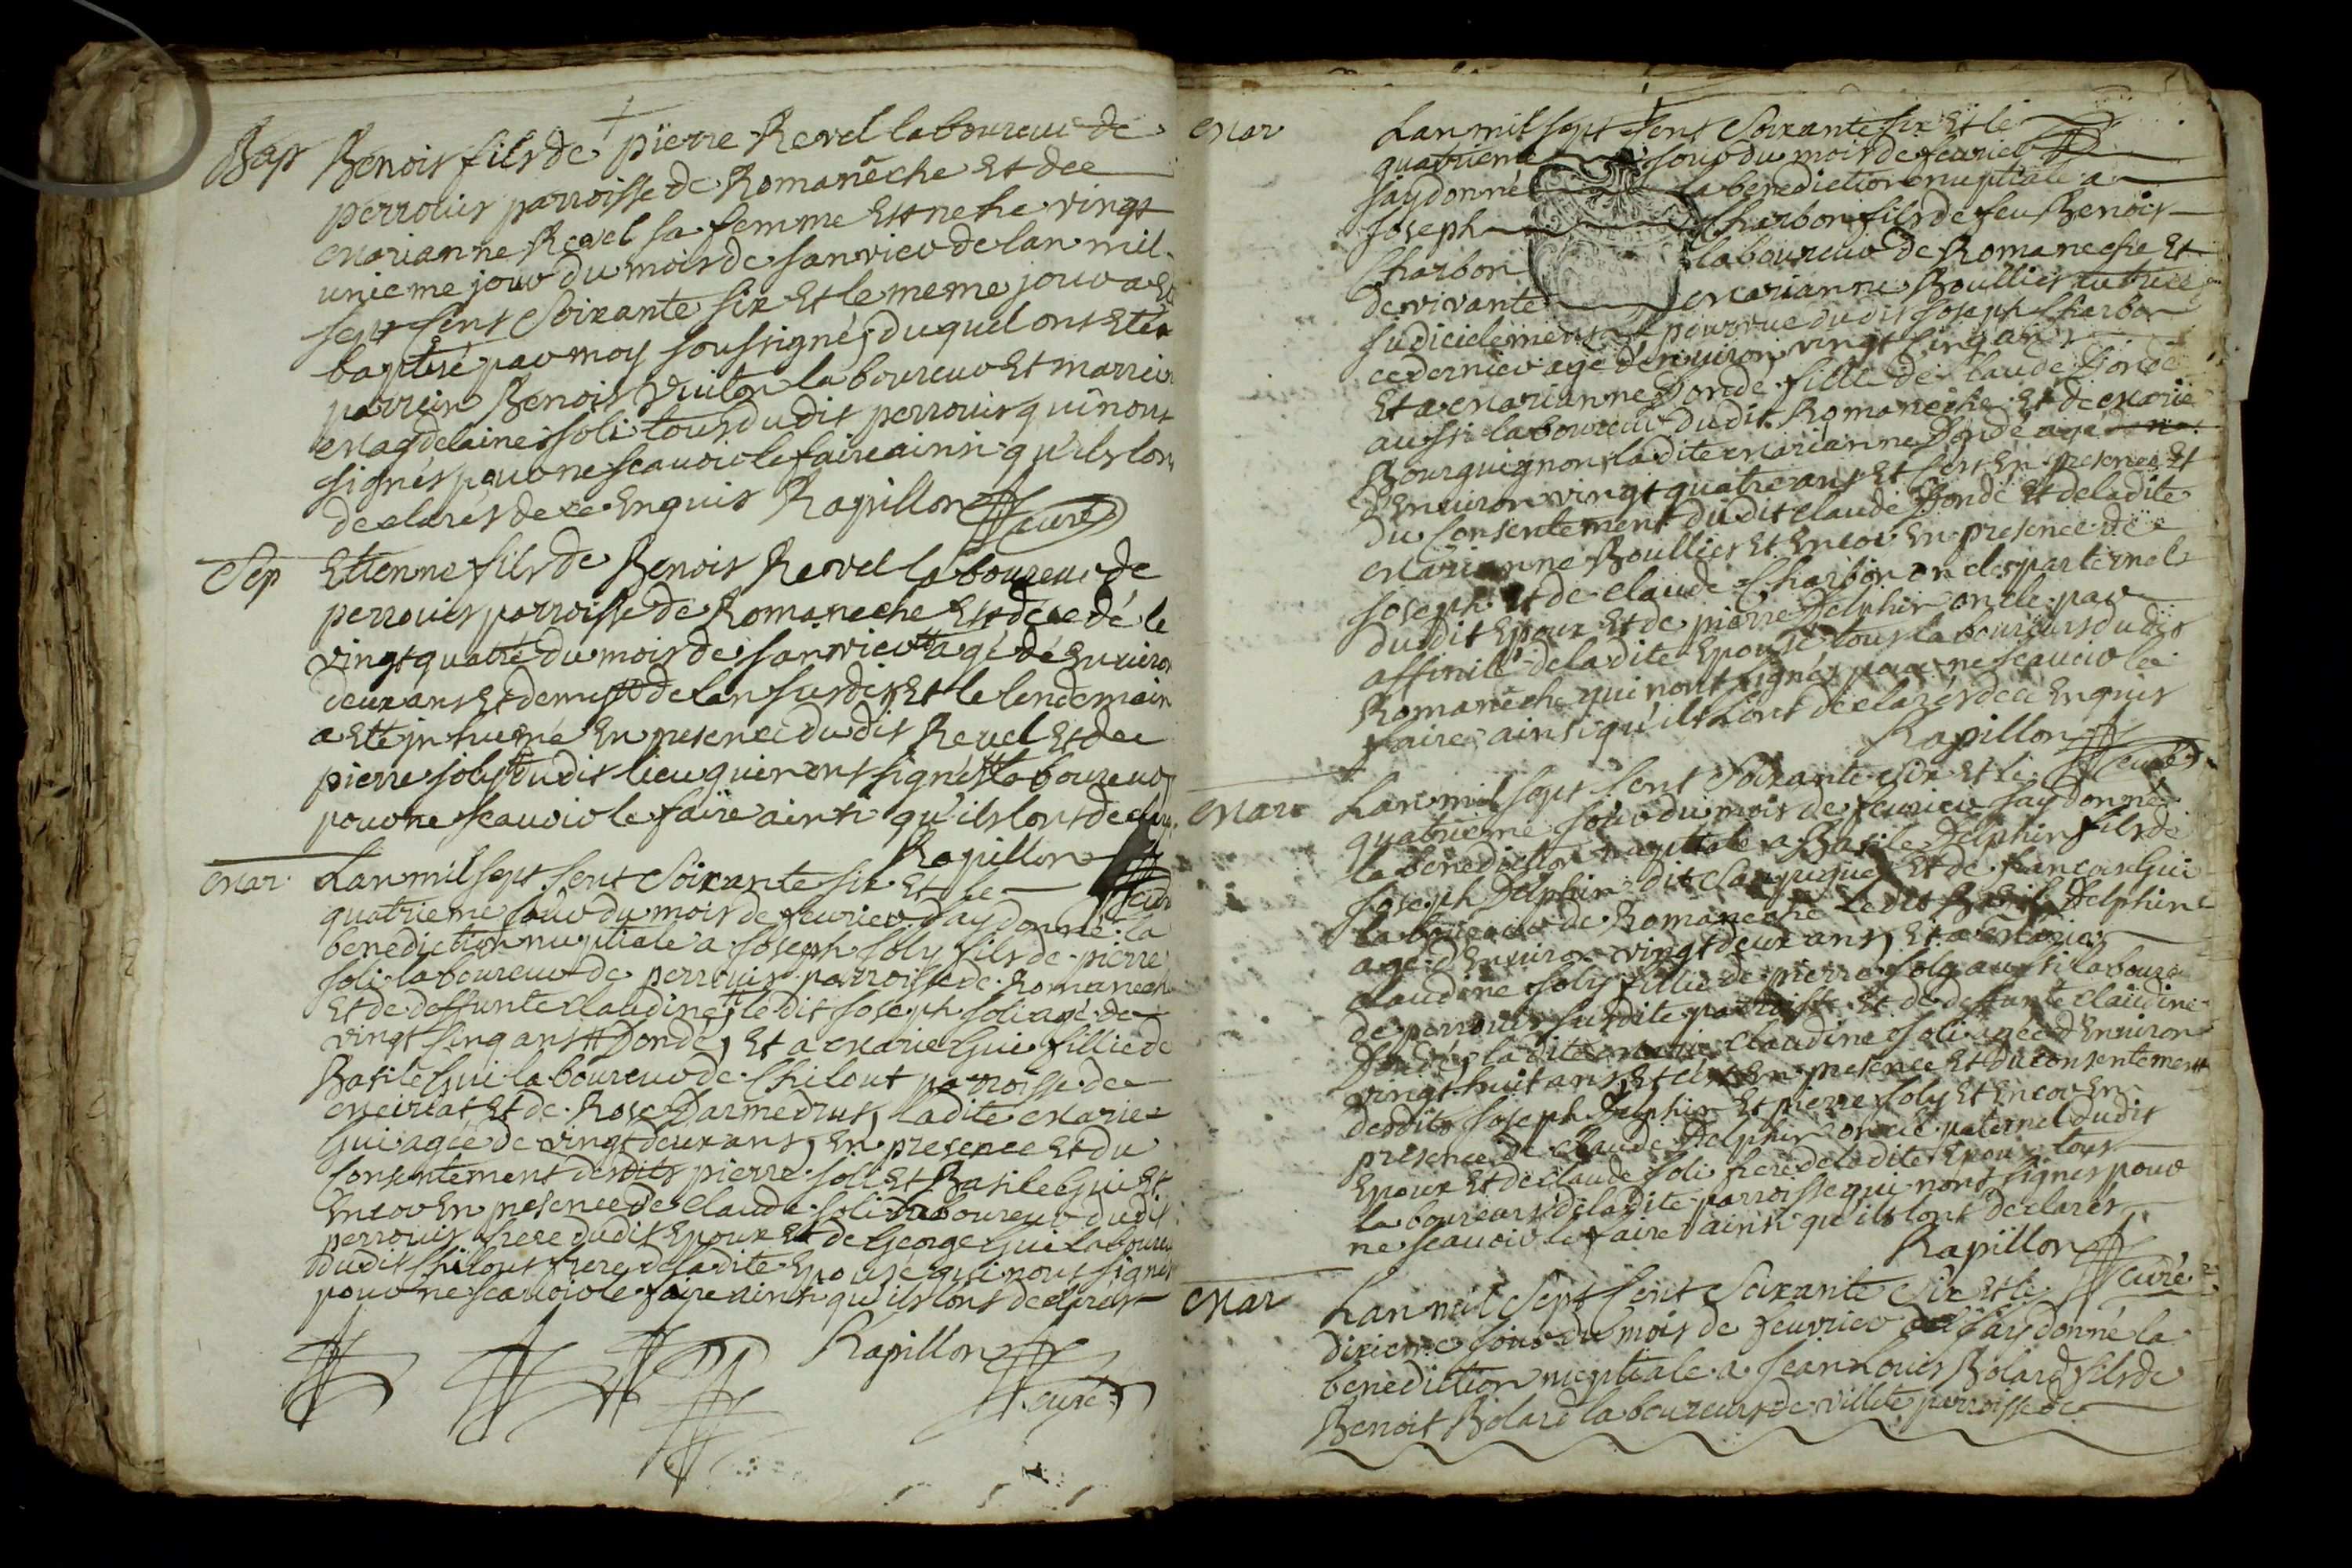 Bap Benois fils de pierre Revel laboureur de
perrouis parroisse de Romanêche Et de
Marianne Revel sa femme Est ne he vingt
unieme jour du mois de Janvier de lan mil
sept Cent Soixante Six Et le meme jour a Et
baptisé par moy soussigné, duquel ont Eté
parrein Benois Vuiton laboureur Et marreine
Magdelaine Soli tous du dit perrouis qui nont
signés pour ne scauoir le faire ainsi qu'ils lon
declarés de ce Enquis Rapillon curé
Sep Etienne fils de Benois Revel laboureur de
perrouis parroisse de Romaneche Est decedé le
vingt quatre du mois de Janvier agé dé Enuiron
deux ans Et demis de lan susdit Et le lendemain
a Eté inhumé En presence du dit Revel Et de
pierre Soly du dit lieu qui nont signés laboureurs
pour ne scauoir le faire ainsi qu'ils lont declaré
Rapillon curé
Mar Lan mil sept Cent Soixante Six Et le
quatrieme Jour du mois de feurier Jay donné la
benediction nuptiale a Joseph Soly fils de pierre
Soli laboureur de perrouis parroisse de Romaneche
Et de deffunte Claudine le dit Joseph Soli agé de
vingt Cinq ans Dondé, Et a Marie Gui fillie de
Basile Gui laboureur de Chilout parroisse de
Meiriat Et de Rose Darmedrut, ladite Marie
Gui agée de vingt deux ans, En presence Et du
Consentement desdits pierre Soli Et Basile Gui Et
Encor En presence de Claude Soli laboureur du dit
perrouis frere du dit Epoux Et de George Gui laboureur
du dit Chilout frere de la dite Epouse qui nont signés
pour ne scauoir le faire ainsi qu'ils lont declarés
Rapillon curé
Mar Lan mil sept Cent Soixante Six Et le
quatrieme Jour du mois de feurier
Jay donné la benediction nuptiale a
Joseph Charbon fils de feu Benois
Charbon laboureur de Romaneche Et
de vivante Marianne Boullier tutrice
Judiciclement pourvue du dit Joseph Charbon
ce dernier agé d'Enuiron vingt Cinq ans
Et a Marianne Dondé fille de Claude Dondé
aussi laboureur du dit Romaneche Et de Marie
Bourguignon ladite Marianne Dondé agé
d'Enuiron vingt quatre ans Et Cest En presence Et
du Consentement du dit Claude Dondé Et de la dite
Marianne Boullier Et Encor En presence de
Joseph Et de Claude Charbon oncles paternels
du dit Epoux Et de pierre Delphin oncle par
affinité de la dite Epouse tous laboureurs du dit
Romanêche qui nont signés pour ne scauoir le
faire ainsi qu'ils Lont declarés de ce Enquis
Rapillon curé
Mar Lan mil sept Cent Soixante Six Et le
quatrieme Jour du mois de feurier Jay donné
la benediction nuptiale a Basile Delphin fils de
Joseph Delphin dit Et de francoise Gui
laboureur de Romaneche le dit Basile Delphin
agé d'Enuiron vingt deux ans, Et a Marie
Claudine Soly fillie de pierre Soly aussi laboureur
de perrouis susdite parroisse Et de deffunte Claudine
Dondé, ladite Marie Claudine Soli agée d'Enuiron
vingt huit ans Et Cest En presence Et du consentement
desdits Joseph Delphin Et pierre Soly Et Encor En
presence de Claude Delphin oncle paternel du dit
Epoux Et de Claude Soli frere de la dite Epouse tous
laboureurs de la dite parroisse qui nont signés pour
ne scauoir le faire ainsi qu'ils lont declarés
Rapillon curé
Mar Lan mil Sept Cent Soixante Six Et le
dixieme Jour du mois de feuvrier Jay donné la
benediction nuptiale a Jean Louis Bolard fils de
Benoit Bolard laboureurs de villete parroisse de